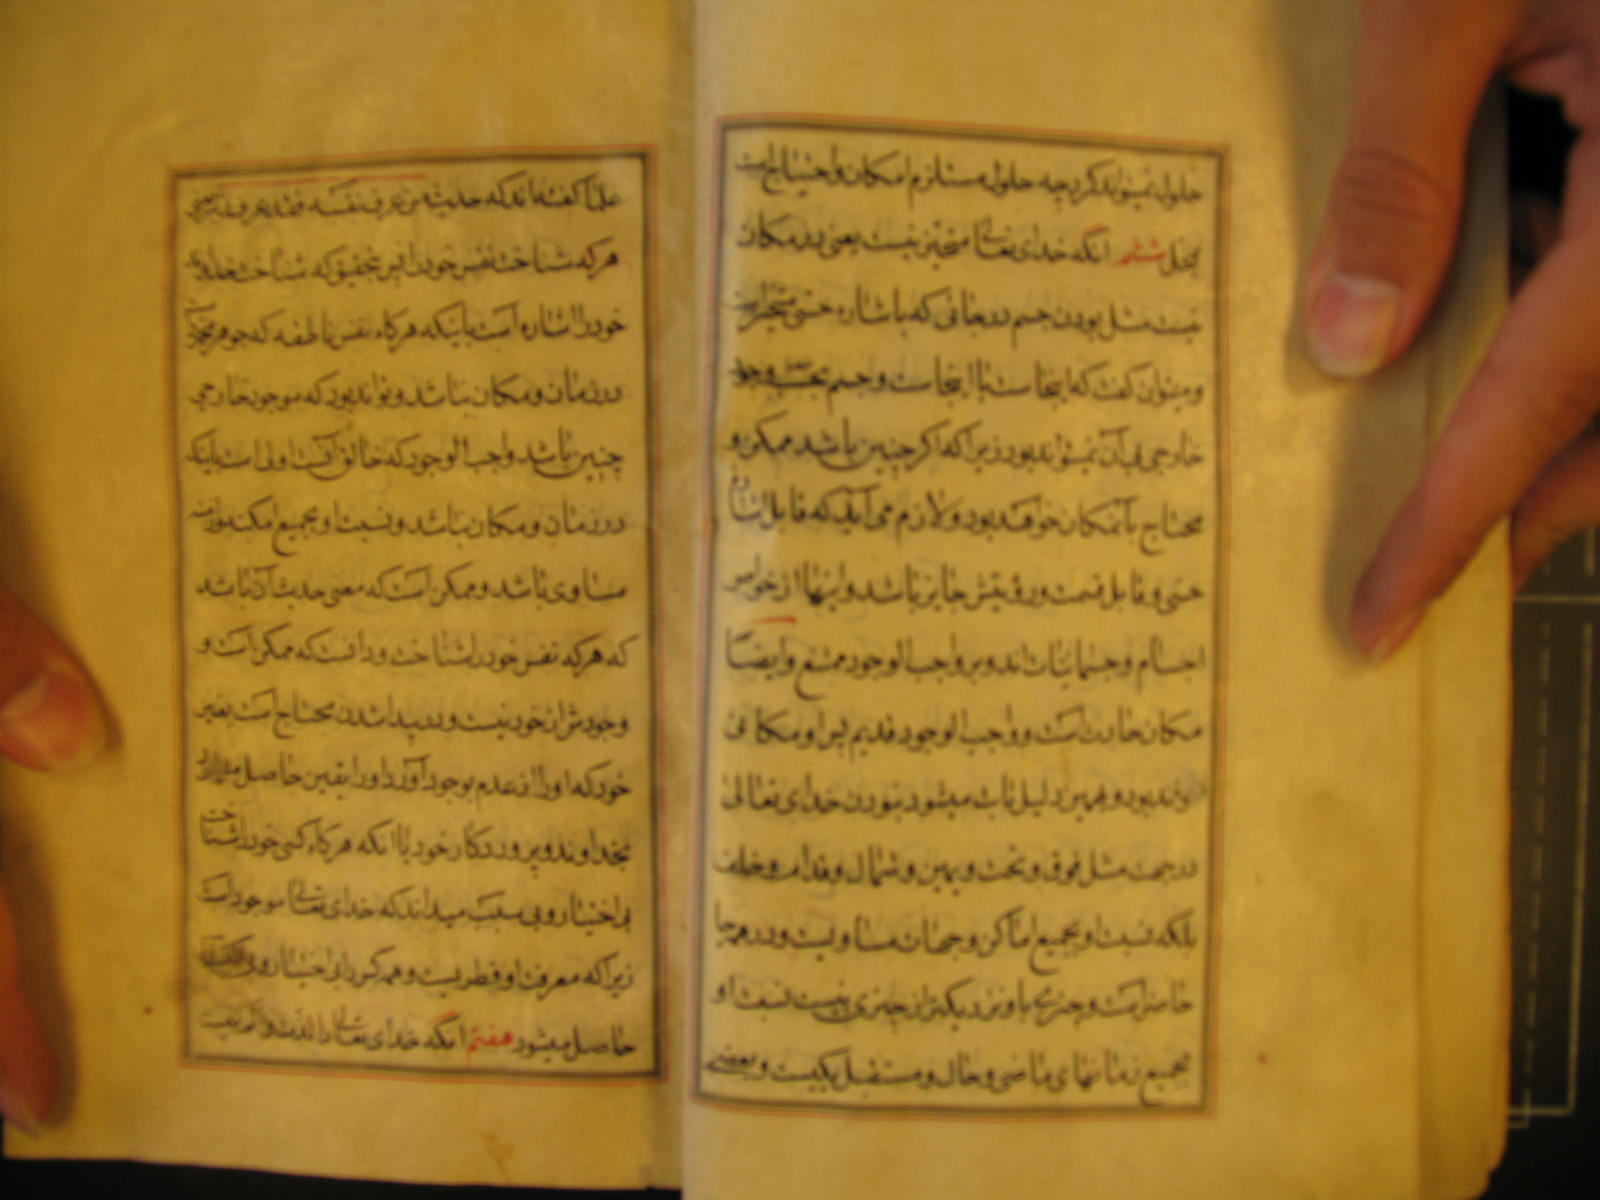 حلول نمیتواند کرد چه حلول مستلزم امکان و احتیاج است
بمحل ششم انکه خدای تعالی متحیز نیست یعنی در مکان
نیست مثل بودن جسم در مکانی که باشاره حسی متحیز است
و میتوان کفت که اینجاست یا اینجاست و جسم بحسب وجود
خارجی بی آن نمیتواند بود زیرا که اکر چنین باشد ممکن و
محتاج بآنمکان خواهد بود و لازم می آید که قابل اشارهٔ
حسی و قابل قسمت و رؤیتش جایز باشد و اینها از خواص
اجسام و جسمانیات اند و بر واجب الوجود ممتنع و ایضا
مکان حادث است و واجب الوجود قدیم پس او مکانی
نتواند بود و بهمین دلیل ثابت میشود نبودن خدای تعالی
در جهت مثل فوق و تحت و یمین و شمال و قدام و خلف
بلکه نسبت او بجمیع اماکن و جهات مساویست و در همه جا
حاضر است و چیزی باو نزدیکتر از چیزی نیست نسبت او
بجمیع زمانهای ماضی و حال و مستقبل یکیست و بعضی
علما کفته اند که حدیث من عرف نفسه فقد عرف ربه یعنی
هر که شناخت نفس خود را پس بتحقیق که شناخت خداوند
خود را اشاره است باینکه هرکاه نفس ناطقه که جوهر مجرد است
در زمان و مکان نباشد و تواند بود که موجود خارجی
چنین باشد واجب الوجود که خالق آنست اولی است باینکه
در زمان و مکان نباشد و نسبت او بجمیع امکنه و ازمنه
مساوی باشد و ممکن است که معنی حدیث آن باشد
که هر که نفس خود را شناخت و دانست که ممکن است و
وجودش از خود نیست و در پیدا شدن محتاج است بغیر
خود که او را از عدم بوجود آورد او را یقین حاصل میشود
بخداوند و پروردکار خود یا انکه هرکاه کسی خود را شناخت
بی اختیار و بی سبب میداند که خدای تعالی موجود است
زیرا که معرفت او فطریست و همه کس را بی اختیار و بی
حاصل میشود هفتم انکه خدای تعالی را لذت و الم نیست